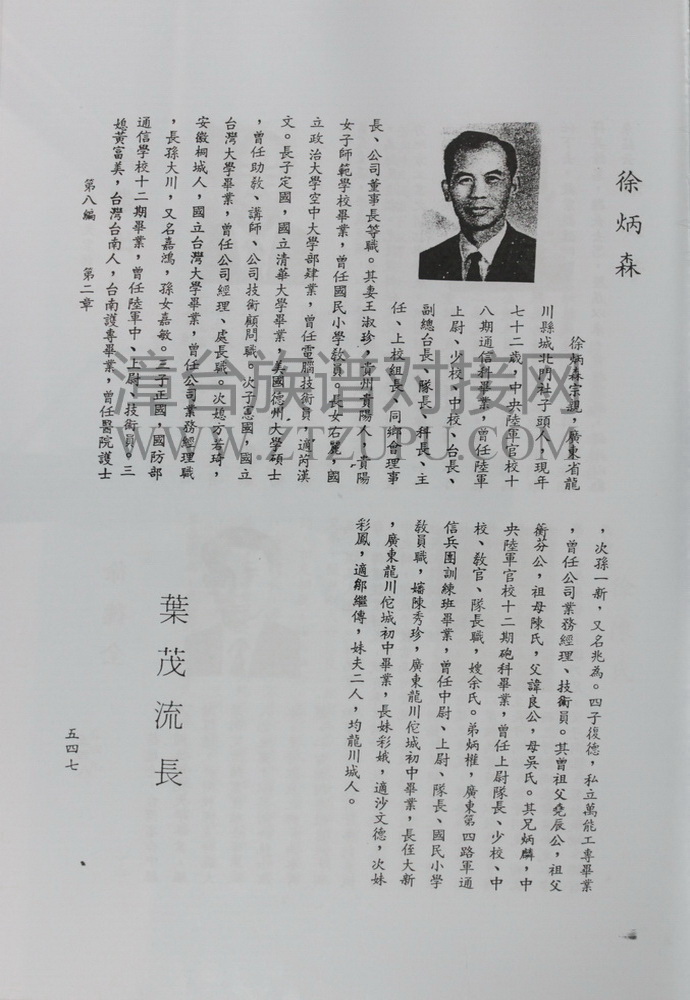 徐炳森
徐炳森宗親，廣東省龍
川縣城北門社子頭人，現年
七十二歲，中央陸軍官校十
八期通信科畢業，曾任陸軍
上尉、少校、中校、台長、
副總台長、隊長、科長、主
任、上校組長、同鄉會理事
長、公司董事長等職。其妻王淑珍，貴州貴陽人，貴陽
女子師範學校畢業，曾任國民小學教員。長女右麗，國
立政治大學空中大學部肄業，曾任電腦技術員，適芮漢
文。長子定國，國立清華大學畢業，美國德州大學碩士
，曾任助教、講師、公司技術顧問職。次子憲國，國立
台灣大學畢業，曾任公司經理、處長職。次媳方若琦，
安徽桐城人，國立台灣大學畢業，曾任公司業務經理職
，長孫大川，又名嘉鴻，孫女嘉敏。三子正國，國防部
通信學校十二期畢業，曾任陸軍中、上尉、技術員。三
媳黃富美，台灣台南人，台南護專畢業，曾任醫院護士
第八編　第二章
，次孫一新，又名兆為。四子復德，私立萬能工專畢業
，曾任公司業務經理、技術員。其曾祖父堯辰公，祖父
衡芬公，祖母陳氏，父諱良公，母吳氏。其兄炳麟，中
央陸軍官校十二期砲科畢業，曾任上尉隊長、少校、中
校、教官、隊長職，嫂余氏。弟炳權，廣東第四路軍通
信兵團訓練班畢業，曾任中尉、上尉、隊長、國民小學
教員職，嬸陳秀珍，廣東龍川佗城初中畢業，長侄大新
，廣東龍川佗城初中畢業，長妹彩娥，適沙文德，次妹
彩鳳，適鄒繼傳，妹夫二人，均龍川城人。
葉茂流長
五四七
漳台族谱对接网
WWW.ZTZUPU.COM